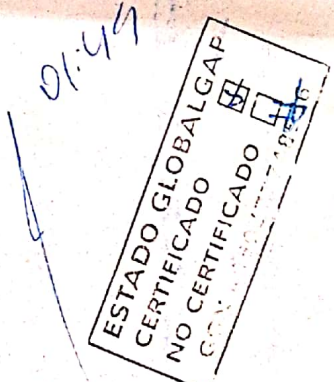 01:49
ESTADO GLOBALGAP
CERTIFICADO
NO CERTIFICADO